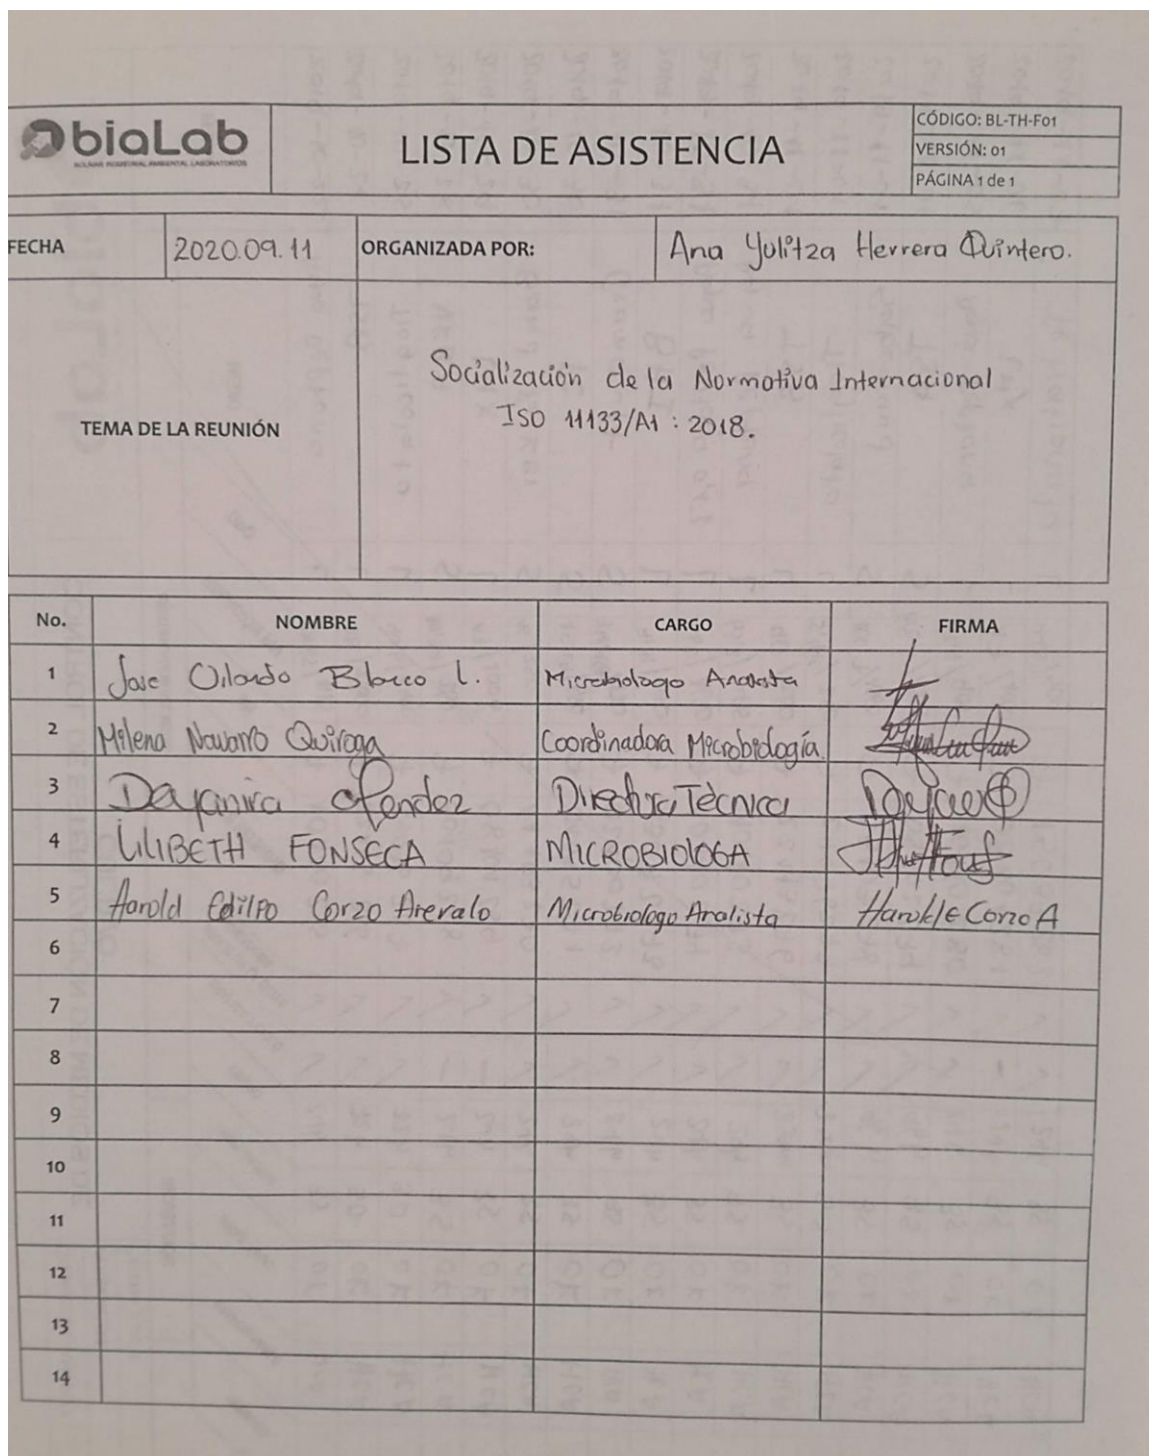 biaLab
LISTA DE ASISTENCIA
CÓDIGO: BL-TH-F01
VERSIÓN: 01
PÁGINA 1 de 1
FECHA
2020.09.11
ORGANIZADA POR:
Ana Yulitza Herrera Quintero.
TEMA DE LA REUNIÓN
Socialización de la Normativa Internacional
ISO 11133/A1 : 2018.
No. NOMBRE CARGO FIRMA
1 Jose Orlando Blanco L. Microbiologo Analista
2 Milena Navarro Quiroga Coordinadora Microbiología.
3 Dayanira Mendez Directora Tècnica
4 LILIBETH FONSECA MICROBIOLOGA
5 Harold Edilfo Corzo Arevalo Microbiologo Analista Harold E Corzo A
6
7
8
9
10
11
12
13
14